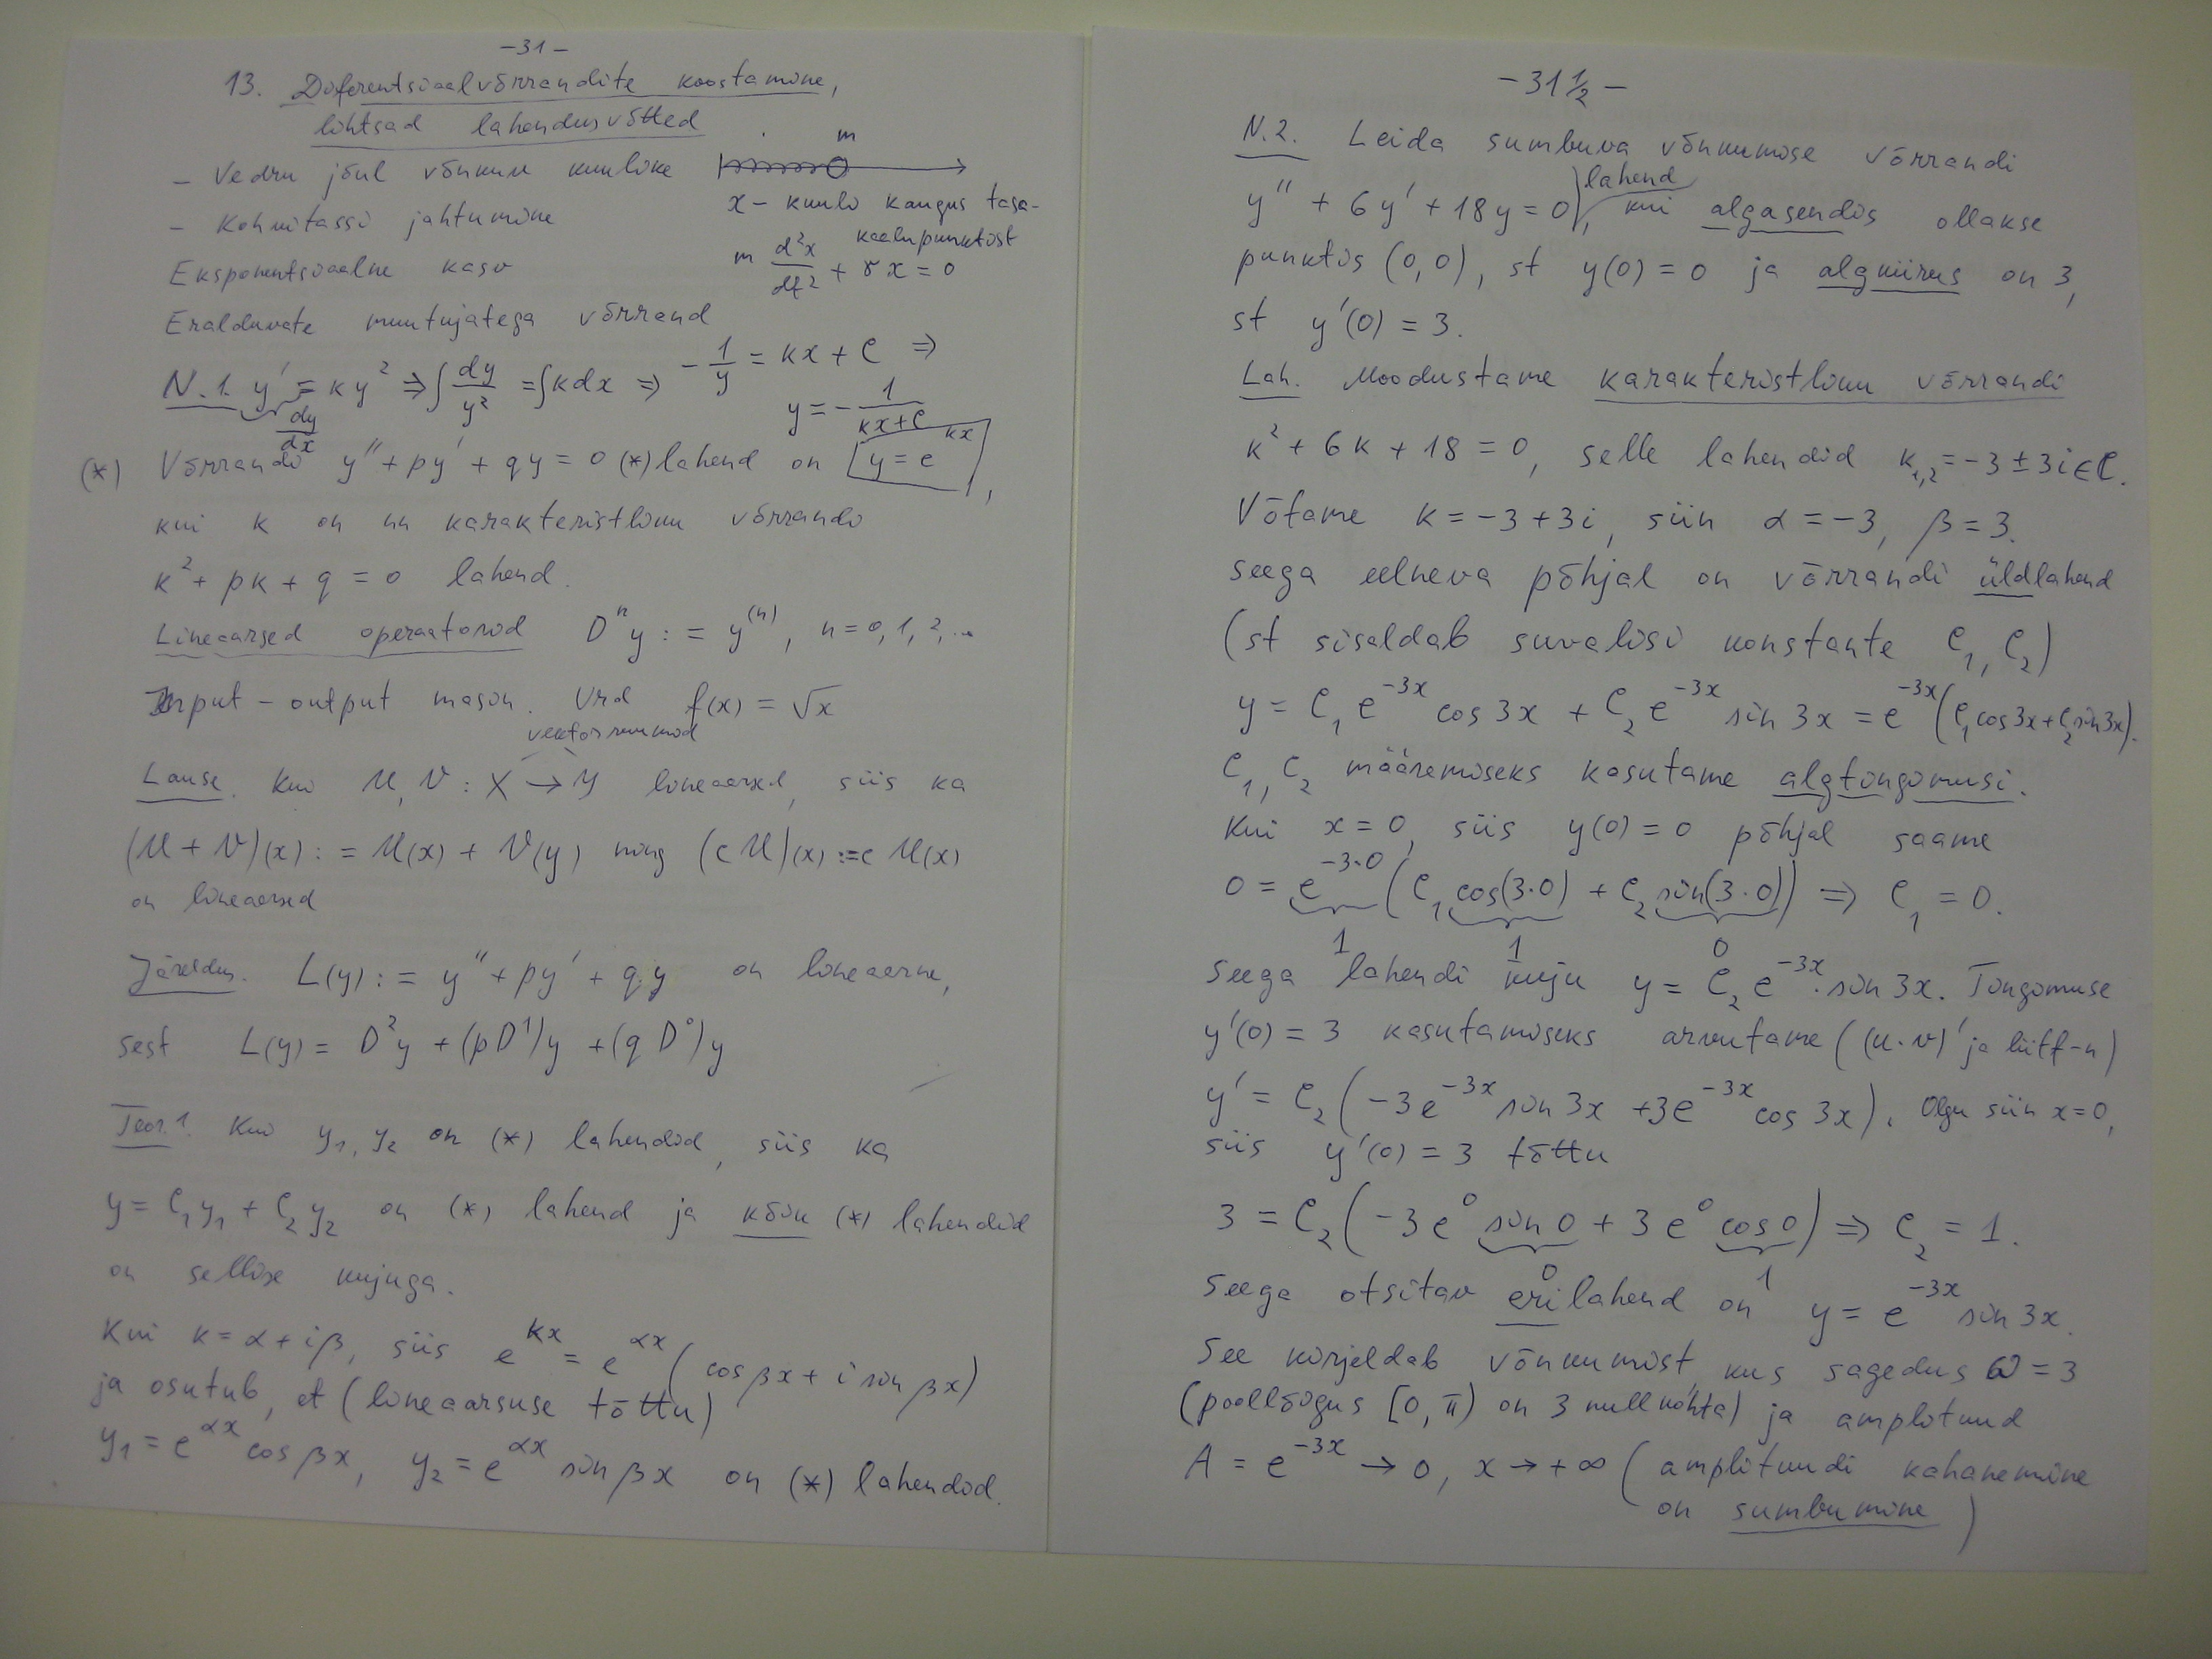 -31-
13. Diferentsiaalvõrrandite koostamine,
lihtsad lahendusvõtted
- Vedru jõul võnkuv kuulike
m
x - kuuli kaugus tasa-
kaalupunktist
- Kohvitassi jahtumine
m d²x/dt² + γx = 0
Eksponentsiaalne kasv
Eralduvate muutujatega võrrand
N.1. y' = ky² ⇒ ∫ dy/y² = ∫ k dx ⇒ -1/y = kx + C ⇒
dy/dx
y = - 1/(kx+C)
(*) Võrrandi y'' + py' + qy = 0 (*) lahend on y = e^{kx},
kui k on nn karakteristliku võrrandi
k² + pk + q = 0 lahend.
Lineaarsed operaatorid Dⁿy := y⁽ⁿ⁾, n = 0, 1, 2, ...
Input - output masin. Vrd f(x) = √x
vektorruumid
Lause. Kui U, V : X → Y lineaarsed, siis ka
(U + V)(x) := U(x) + V(y) ning (cU)(x) := c U(x)
on lineaarsed
Järeldus. L(y) := y'' + py' + qy on lineaarne,
sest L(y) = D²y + (pD¹)y + (qD⁰)y
Teor.1. Kui y₁, y₂ on (*) lahendid, siis ka
y = C₁y₁ + C₂y₂ on (*) lahend ja kõik (*) lahendid
on sellise kujuga.
Kui k = α + iβ, siis e^{kx} = e^{αx}(cos βx + i sin βx)
ja osutub, et (lineaarsuse tõttu)
y₁ = e^{αx} cos βx, y₂ = e^{αx} sin βx on (*) lahendid.
-31 1/2-
N.2. Leida sumbuva võnkumise võrrandi
lahend
y'' + 6y' + 18y = 0, kui algasendis ollakse
punktis (0,0), st y(0) = 0 ja algkiirus on 3,
st y'(0) = 3.
Lah. Moodustame karakteristliku võrrandi
k² + 6k + 18 = 0, selle lahendid k₁,₂ = -3 ± 3i ∈ C.
Võtame k = -3 + 3i, siin α = -3, β = 3.
Seega eelneva põhjal on võrrandi üldlahend
(st sisaldab suvalisi konstante C₁, C₂)
y = C₁e^{-3x} cos 3x + C₂e^{-3x} sin 3x = e^{-3x}(C₁ cos 3x + C₂ sin 3x).
C₁, C₂ määramiseks kasutame algtingimusi.
Kui x = 0, siis y(0) = 0 põhjal saame
0 = e^{-3·0}(C₁ cos(3·0) + C₂ sin(3·0)) ⇒ C₁ = 0.
1 1 0
Seega lahendi kuju y = C₂e^{-3x}·sin 3x. Tingimuse
y'(0) = 3 kasutamiseks arvutame ((u·v)' ja liitf-n)
y' = C₂(-3e^{-3x} sin 3x + 3e^{-3x} cos 3x). Olgu siin x = 0,
siis y'(0) = 3 tõttu
3 = C₂(-3e⁰ sin 0 + 3e⁰ cos 0) ⇒ C₂ = 1.
0 1
Seega otsitav erilahend on y = e^{-3x} sin 3x.
See kirjeldab võnkumist, kus sagedus ω = 3
(poollõigus [0, π) on 3 nullkohta) ja amplituud
A = e^{-3x} → 0, x → +∞ (amplituudi kahanemine
on sumbumine)